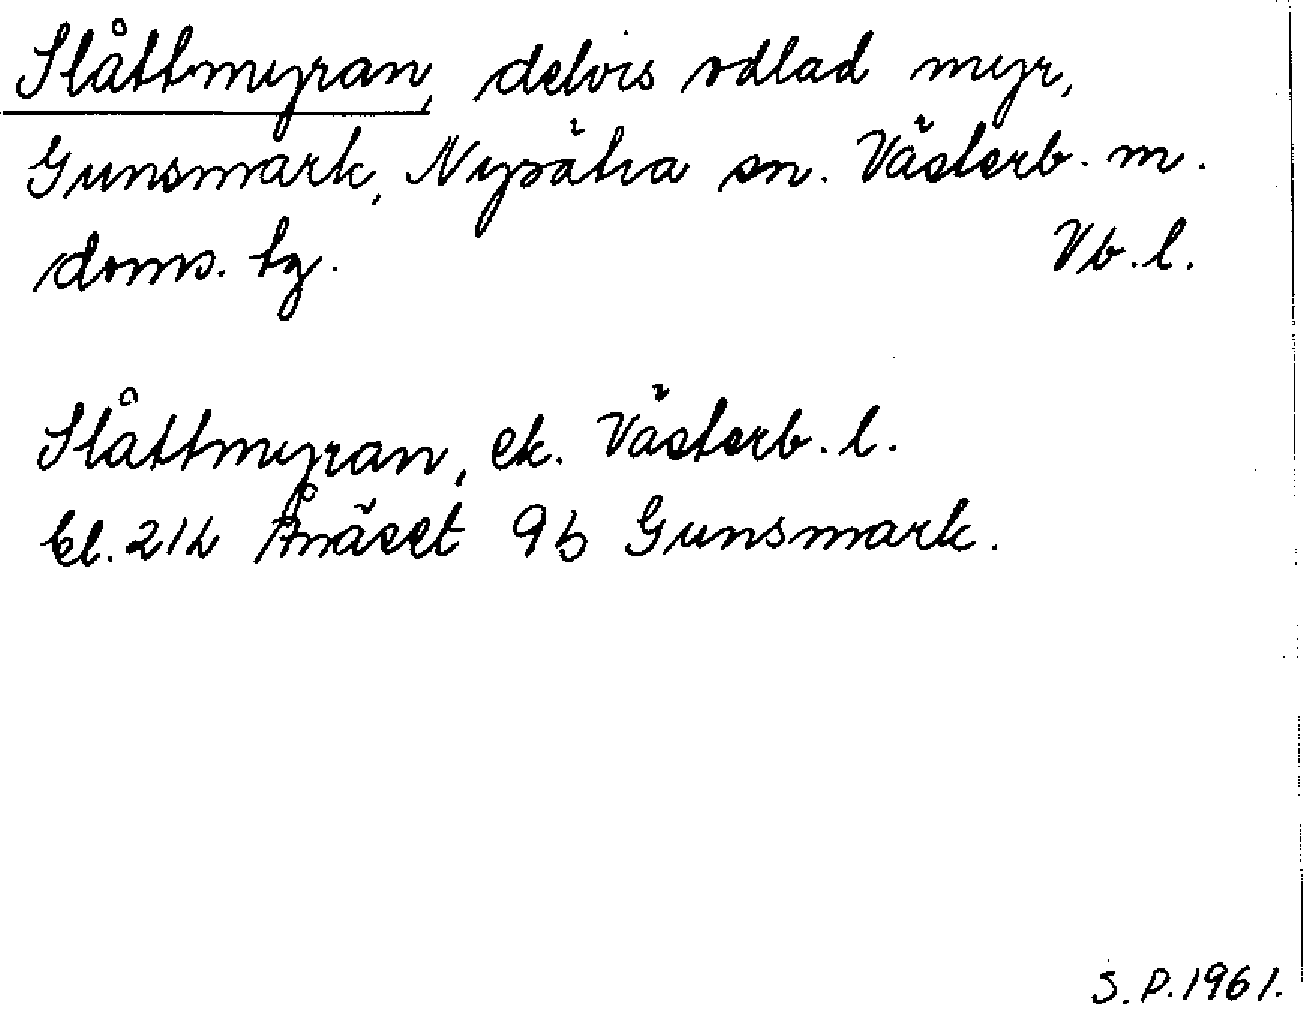 Slåttmyran, delvis odlad myr,
Gunsmark, Nysätra sn. Västerb. m.
doms. tg. Vb. l.
Slåttmyran, ek. Västerb. l.
bl. 21L Ånäset 9b Gunsmark.
S. P. 1961.